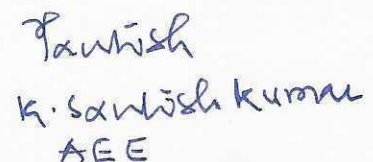 Santosh
K. Santosh Kumar
AEE